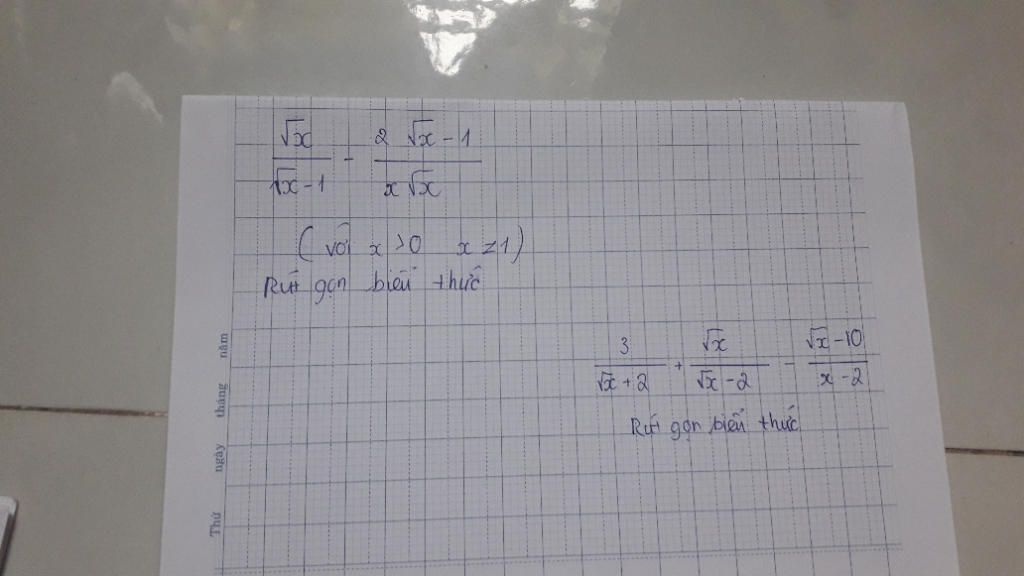 √x / (√x - 1) - (2 √x - 1) / (x √x)
(với x > 0 x ≠ 1)
Rút gọn biểu thức
3 / (√x + 2) + √x / (√x - 2) - (√x - 10) / (x - 2)
Rút gọn biểu thức
Thứ ngày tháng năm